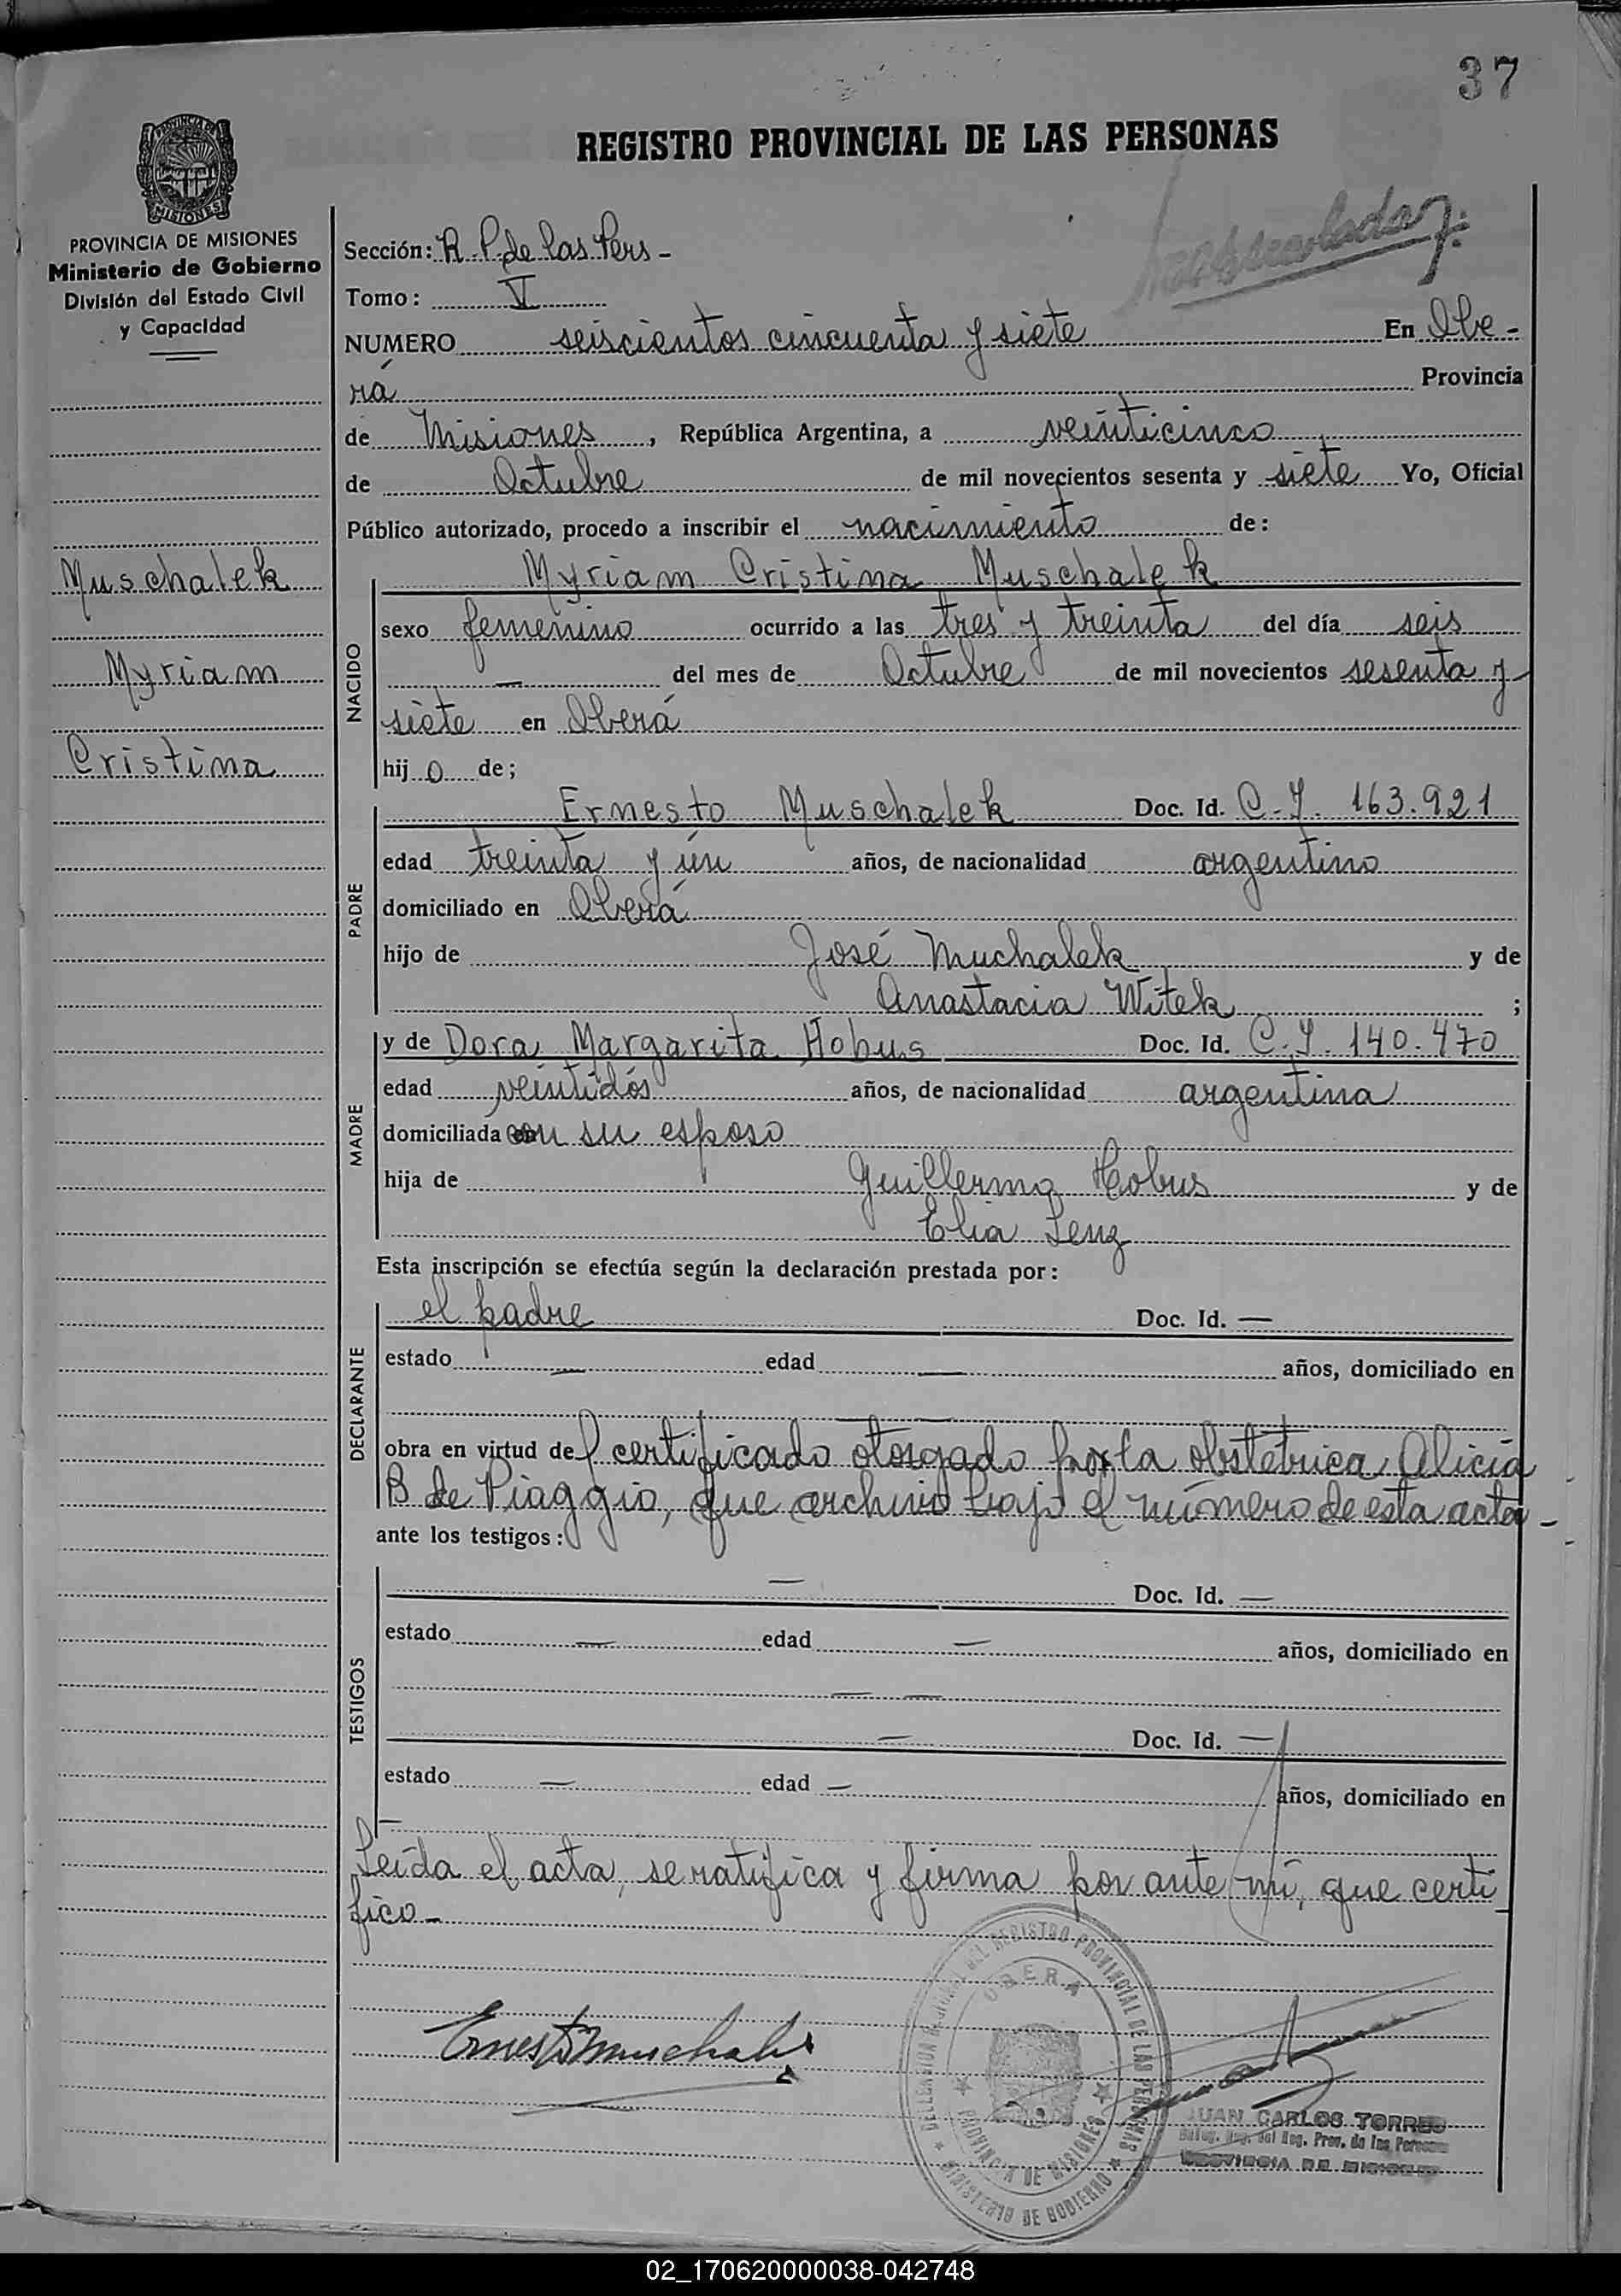 37
REGISTRO PROVINCIAL DE LAS PERSONAS
PROVINCIA DE MISIONES
MISIONES
PROVINCIA DE MISIONES
Ministerio de Gobierno
División del Estado Civil
y Capacidad
Muschalek
Myriam
Cristina
Sección: R. P. de las Pers -
Tomo: V
NUMERO seiscientos cincuenta y siete En Obe -
rá Provincia
de Misiones, República Argentina, a veinticinco
de Octubre de mil novecientos sesenta y siete Yo, Oficial
Público autorizado, procedo a inscribir el nacimiento de:
Myriam Cristina Muschalek
NACIDO
sexo femenino ocurrido a las tres y treinta del día seis
— del mes de Octubre de mil novecientos sesenta y
siete en Oberá
hijo de;
PADRE
Ernesto Muschalek Doc. Id. C.I. 163.921
edad treinta y ún años, de nacionalidad argentino
domiciliado en Oberá
hijo de José Muchalek y de
Anastacia Witek ;
MADRE
y de Dora Margarita Hobus Doc. Id. C.I. 140.470
edad veintidós años, de nacionalidad argentina
domiciliada con su esposo
hija de Guillermo Hobus y de
Elia Lenz
Esta inscripción se efectúa según la declaración prestada por:
DECLARANTE
el padre Doc. Id. —
estado — edad — años, domiciliado en
—
obra en virtud del certificado otorgado por la obstétrica Alicia
B de Piaggio, que archivo bajo el número de esta acta -
ante los testigos:
TESTIGOS
— Doc. Id. —
estado — edad — años, domiciliado en
— —
— Doc. Id. —
estado — edad — años, domiciliado en
—
Leída el acta, se ratifica y firma por ante mí, que certi
fico -
Ernesto Muschalek
DELEGACION REGIONAL DEL REGISTRO PROVINCIAL DE LAS PERSONAS
OBERA
PROVINCIA DE MISIONES
MINISTERIO DE GOBIERNO
JUAN CARLOS TORRES
Deleg. Reg. del Reg. Prov. de las Personas
PROVINCIA DE MISIONES
02_170620000038-042748